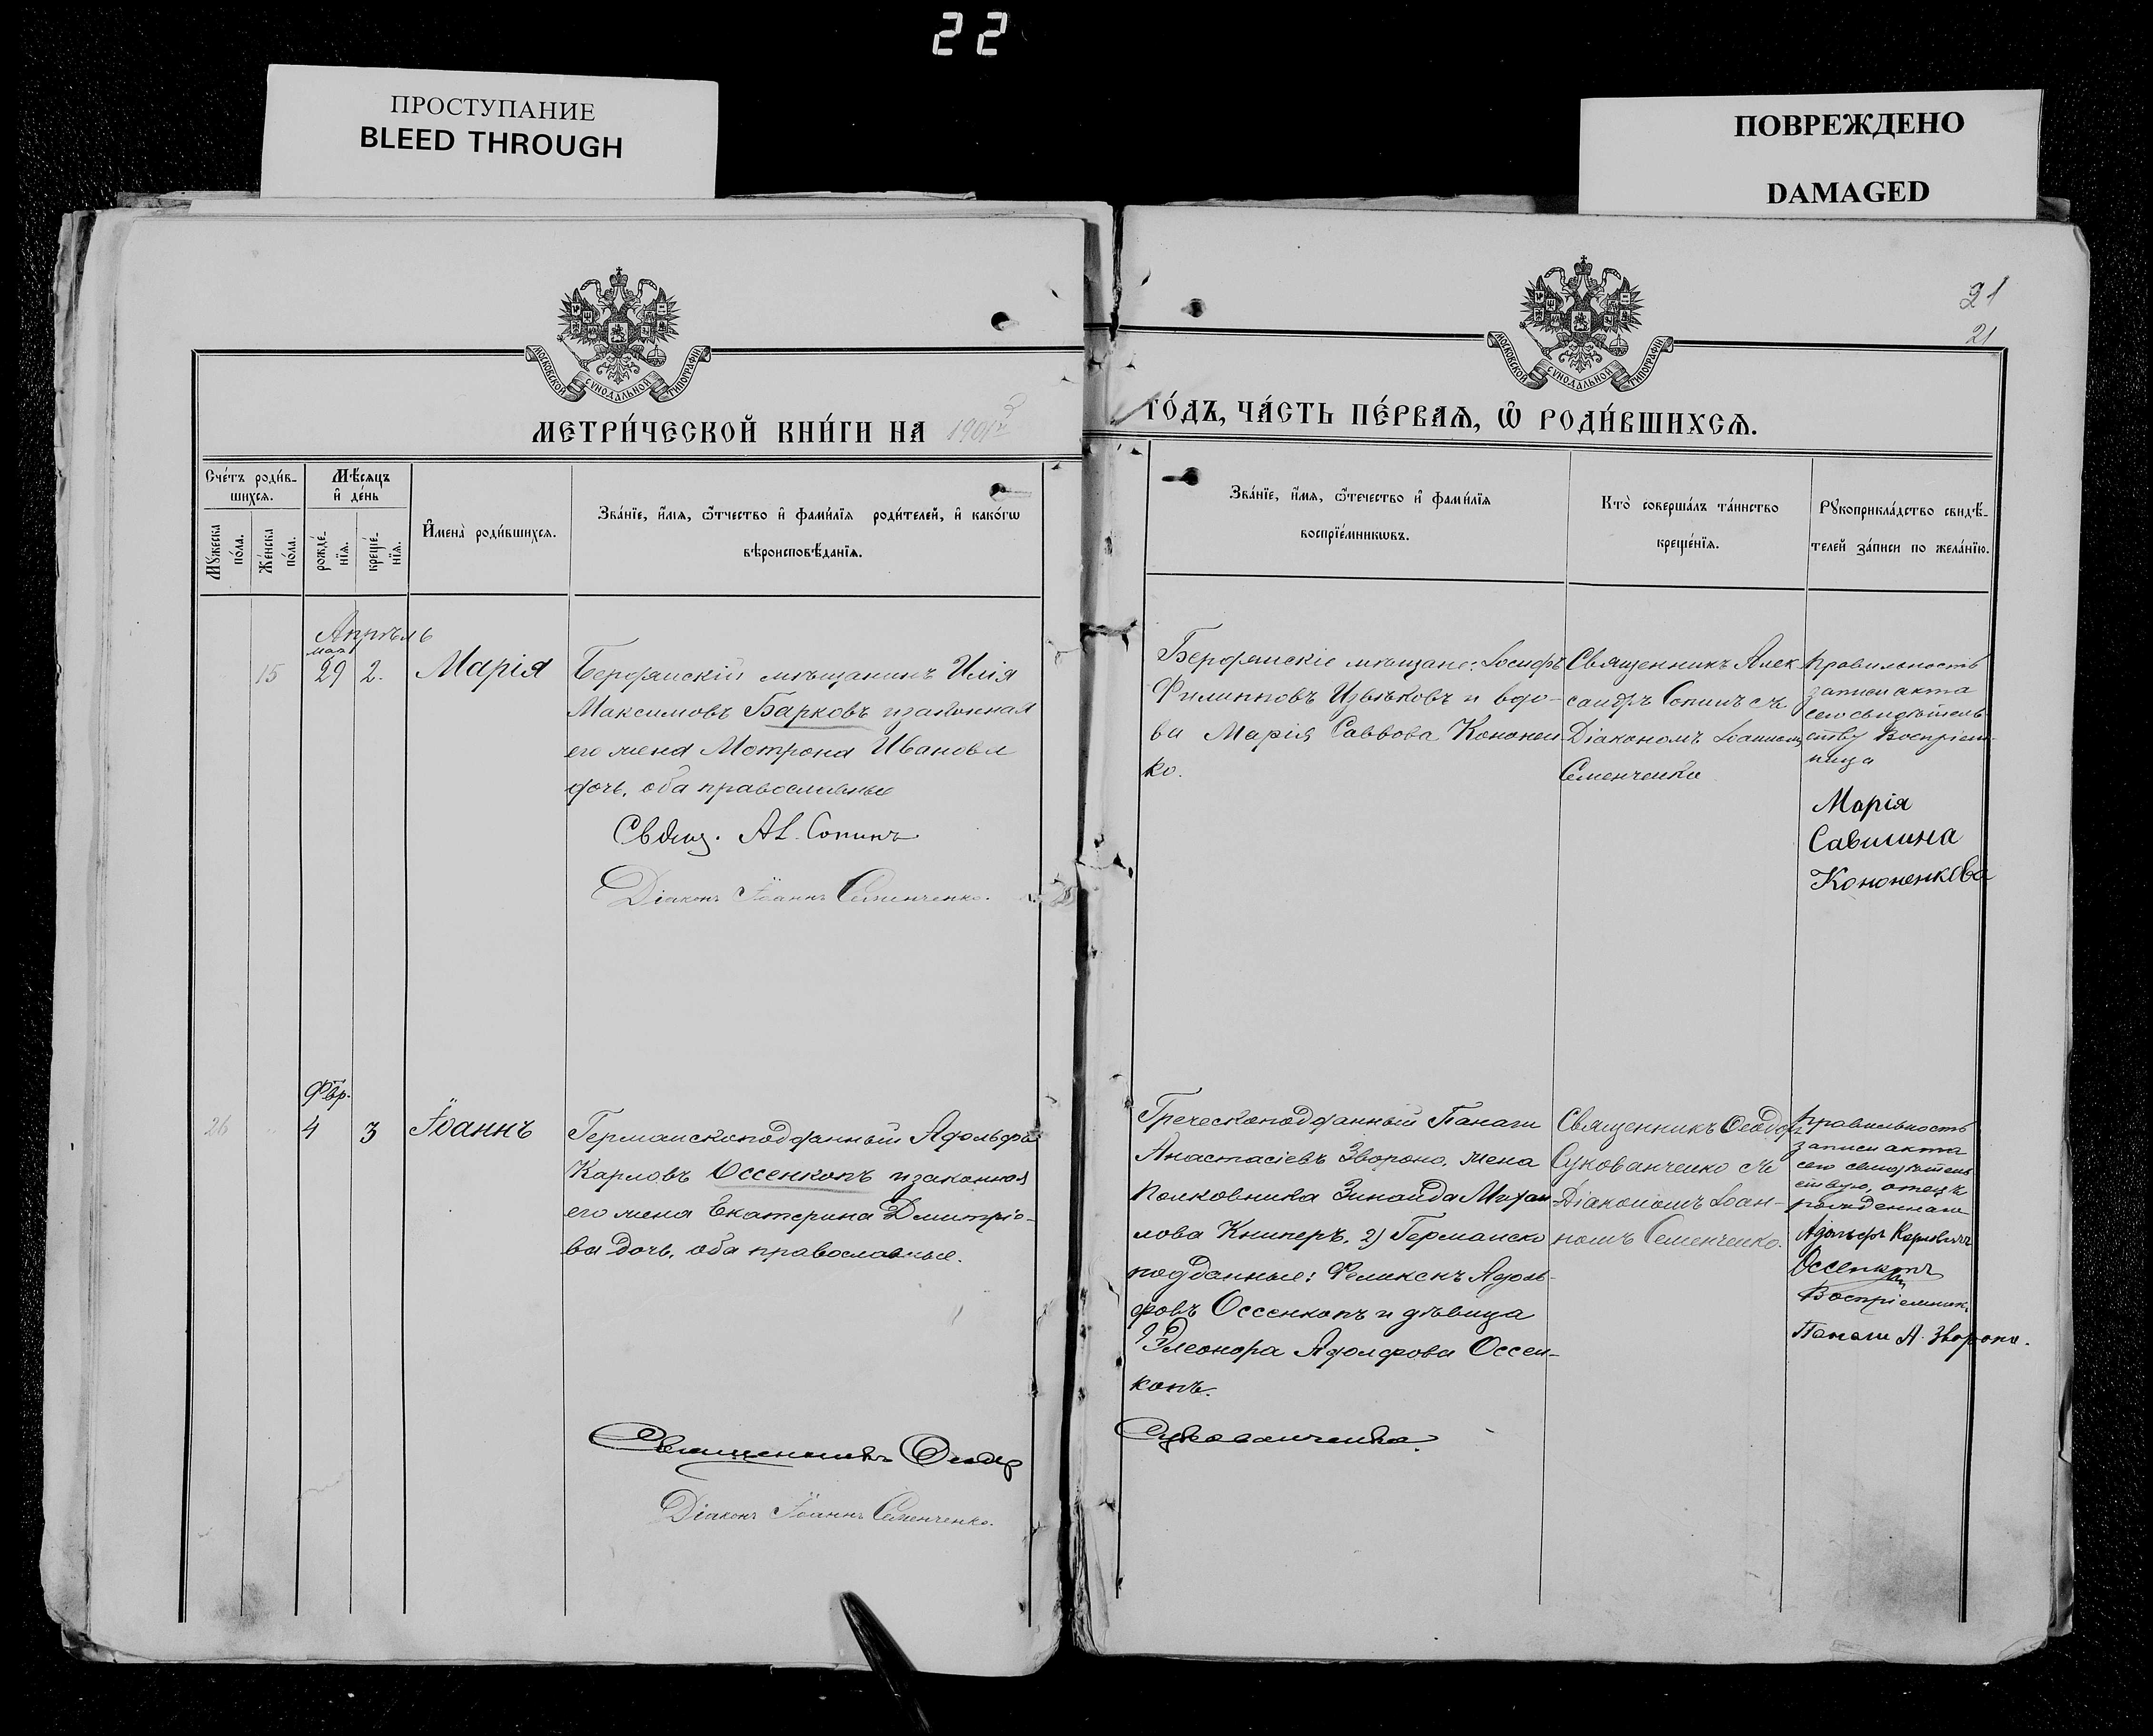 22
ПРОСТУПАНИЕ
BLEED THROUGH
ПОВРЕЖДЕНО
DAMAGED
21
21
МОСКОВСКОЙ СѴНОДАЛЬНОЙ ТИПОГРАФІИ
МОСКОВСКОЙ СѴНОДАЛЬНОЙ ТИПОГРАФІИ
МЕТРИ́ЧЕСКОЙ КНИ́ГИ НА 1903
ГО́ДЪ, ЧА́СТЬ ПЕ́РВАѦ, Ѽ РОДИ́ВШИХСѦ.
Сче́тъ роди́в-
шихсѧ.
Мꙋ́жеска
по́ла.
Же́нска
по́ла.
Мѣ́сѧцъ
и҆ де́нь
рожде́-
нїѧ.
креще́-
нїѧ.
И҆мена̀ роди́вшихсѧ.
Зва́нїе, и҆́мѧ, ѻ҆́тчество и҆ фами́лїѧ роди́телей, и҆ како́гѡ
вѣроисповѣ́данїѧ.
Зва́нїе, и҆́мѧ, ѻ҆́течество и҆ фами́лїѧ
воспрїе́мникѡвъ.
Кто̀ соверша́лъ та́инство
креще́нїѧ.
Рꙋкоприкла́дство свидѣ́-
телей за́писи по жела́нїю.
Апрѣль
мая
15
29
2.
Марія
Бердянскій мѣщанинъ Илія
Максимовъ Барковъ и законная
его жена Мотрона Иванова
дочь, оба православные
Свящ. Ал. Сопинъ
Діаконъ Іоаннъ Семенченко.
Бердянскіе мѣщане: Іосифъ
Филипповъ Извѣковъ и вдо-
ва Марія Саввова Кононен-
ко.
Священникъ Алек
сандръ Сопинъ съ
Діакономъ Іоанномъ
Семенченко
Правильность
записи акта
сего свидѣтель-
ствую Воспріем-
ница
Марія
Савишна
Кононенкова
Фвр.
26
4
3
Іоаннъ
Германскоподданный Адольфъ
Карловъ Оссенкопъ и законная
его жена Екатерина Дмитріе-
ва дочь, оба православные.
Священникъ Ѳеодоръ
Діаконъ Іоаннъ Семенченко.
Греческоподданный Панаги
Анастасіевъ Звороно, жена
Полковника Зинаида Михаи
лова Книперъ, 2) Германско
подданные: Феликсъ Адоль-
фовъ Оссенкопъ и дѣвица
Элеонора Адолфова Оссен-
копъ.
Сукованченко.
Священникъ Ѳеодоръ
Сукованченко съ
Діакономъ Іоан-
номъ Семенченко.
Правильность
записи акта
сего свидѣтель
ствую, отецъ
рожденнаго
Адольфъ Карловичъ
Оссенкопъ
Воспріемникъ
Панаги А. Звороно.